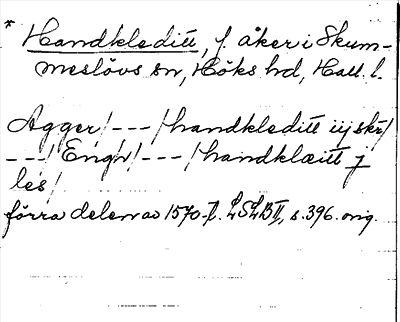 * Handkleditt, f. åker i Skum-
meslövs sn, Höks hd, Hall. l.
Agger/---/handkleditt iij skr/
---/Engh/---/handklæitt j
les/
förra delen av 1570-t. LSLB II, s. 396. orig.